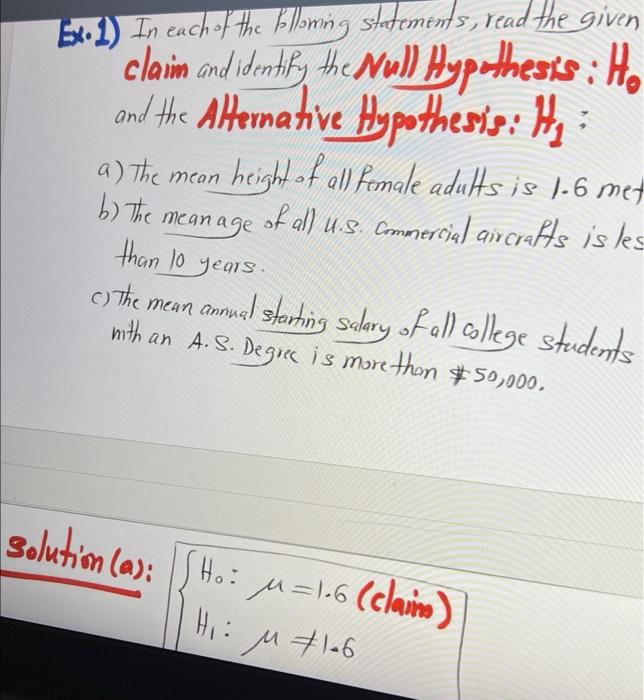 Ex.1) In each of the following statements, read the given
claim and identify the Null Hypothesis: H₀
and the Alternative Hypothesis: H₁:
a) The mean height of all female adults is 1.6 met
b) The mean age of all U.S. Commercial aircrafts is les
than 10 years.
c) The mean annual starting salary of all college students
with an A.S. Degree is more than $50,000.
Solution (a): H₀: μ=1.6 (claim)
H₁: μ≠1.6